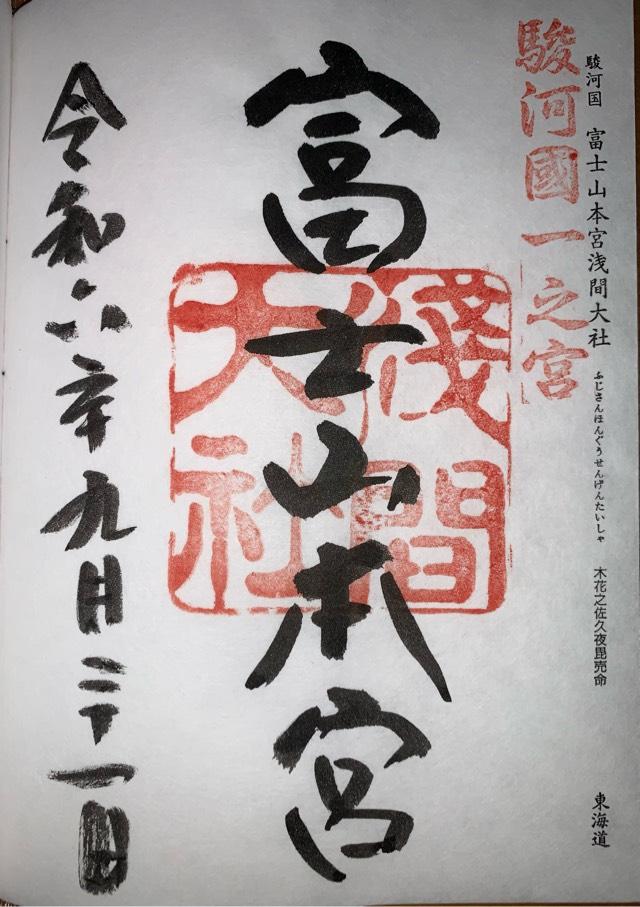 駿河国 富士山本宮浅間大社 ふじさんほんぐうせんげんたいしゃ 木花之佐久夜毘売命 東海道
駿河國一之宮
富士山本宮
淺間
大社
令和六年九月二十一日